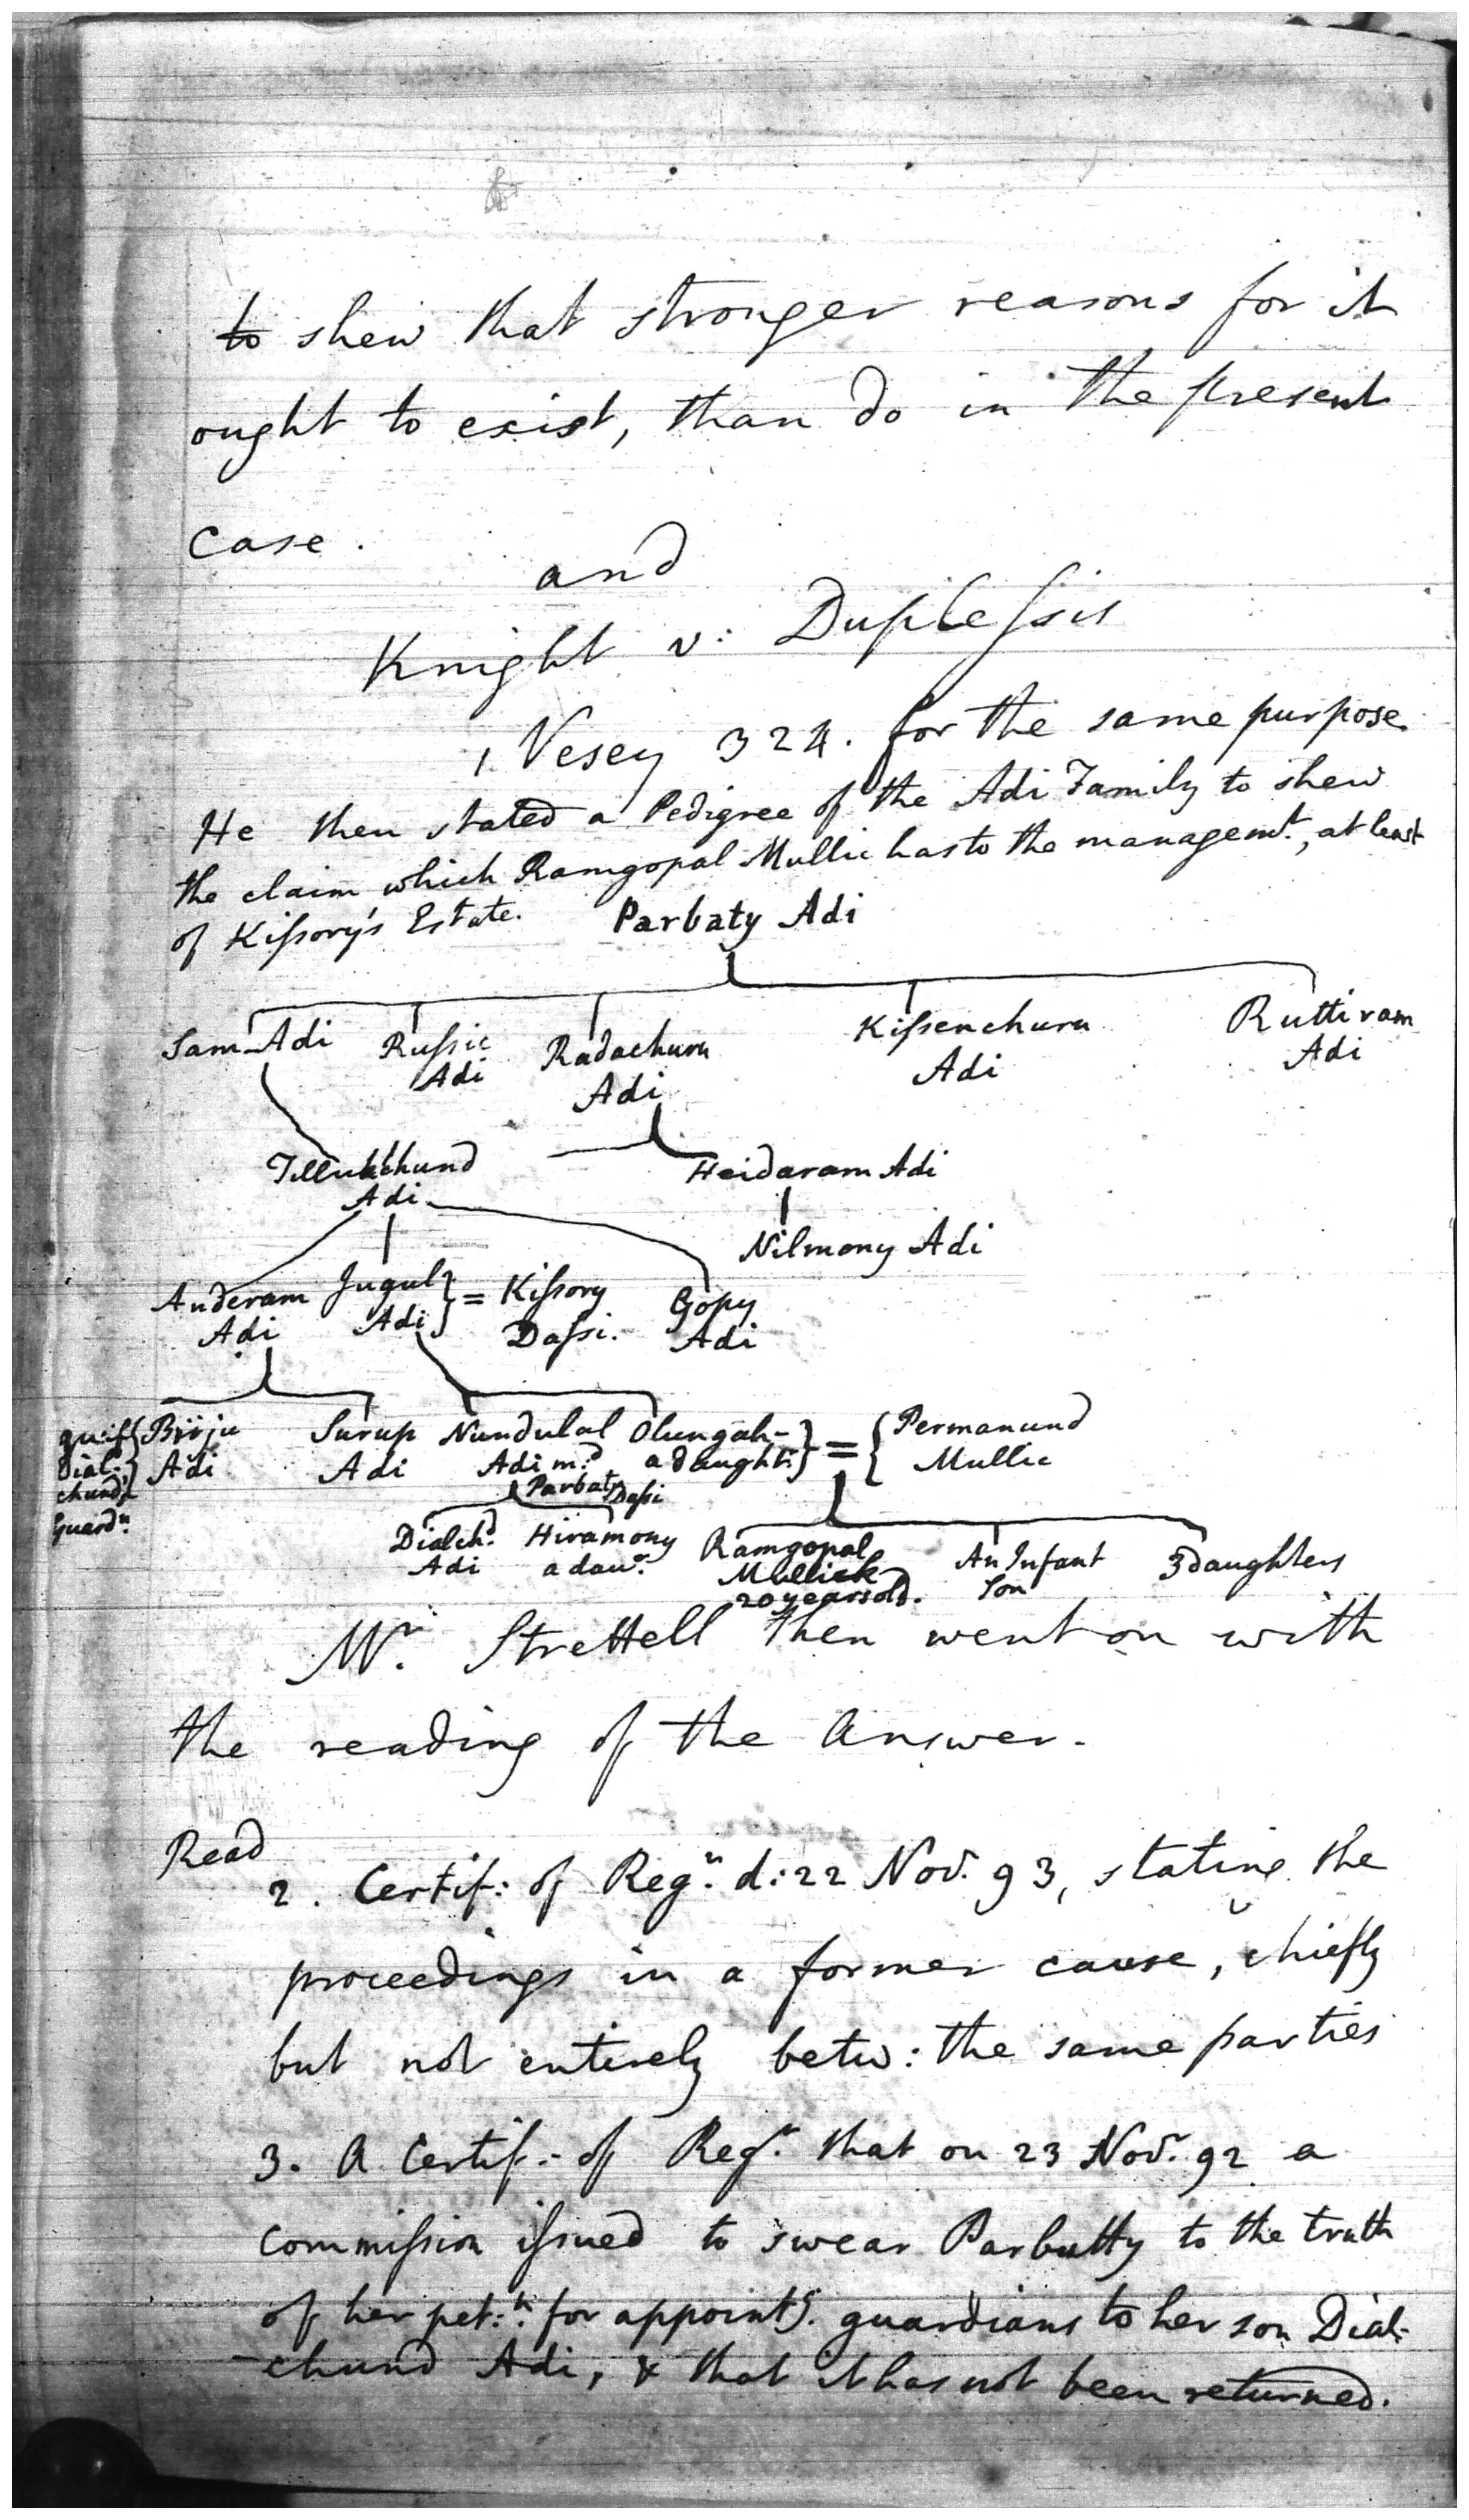 to shew that stronger reasons for it
ought to exist, than do in the present
case.
and
Knight v: Duplessis
1 Vesey 324. for the same purpose.
He then stated a Pedigree of the Adi Family to shew
the claim, which Ramgopal Mullic has to the managemt., at least
of Kissory's Estate.
Parbaty Adi
Sam Adi
Russic
Adi
Radachurn
Adi
Kissenchurn
Adi
Ruttiram
Adi
Tillukchund
Adi
Heidaram Adi
Nilmony Adi
Anderam
Adi
Jugul
Adi } =
Kissory
Dassi.
Gopy
Adi
Dial:
chund
Guardn.
Birju
Adi
Surup
Adi
Nundulal
Adi md.
Parbaty Dassi
Olungah-
a daughtr. } = {
Permanund
Mullic
Dialchd.
Adi
Hiramony
a daur.
Ramgopal
Mullick
20 years old.
An Infant
Son
3 daughters
Mr. Strettell then went on with
the reading of the Answer.
Read
2. Certif: of Regr. d: 22 Novr. 93, stating the
proceedings in a former cause, chiefly
but not entirely betw: the same parties
3. A Certif: of Regr. that on 23 Novr. 92 a
commission issued to swear Parbutty to the truth
of her pet:n. for appointg. guardians to her son Dial-
-chund Adi, & that it has not been returned.